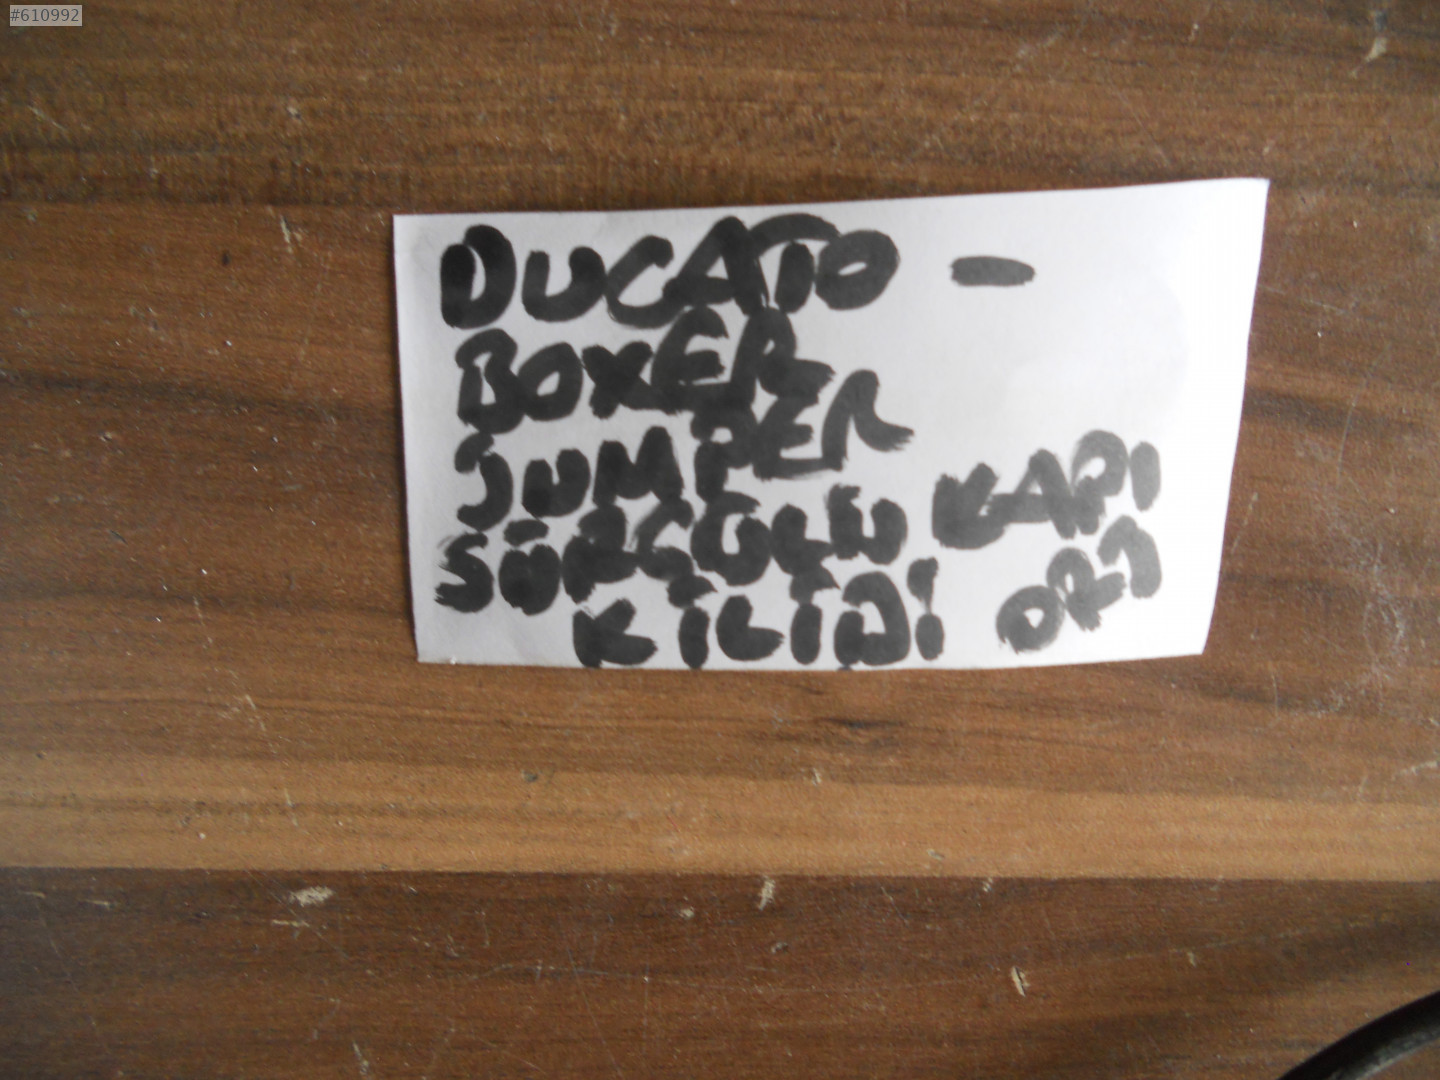 #610992
DUCATO -
BOXER
JUMPER
SÜRGÜLÜ KAPI
KİLİDİ ORJ